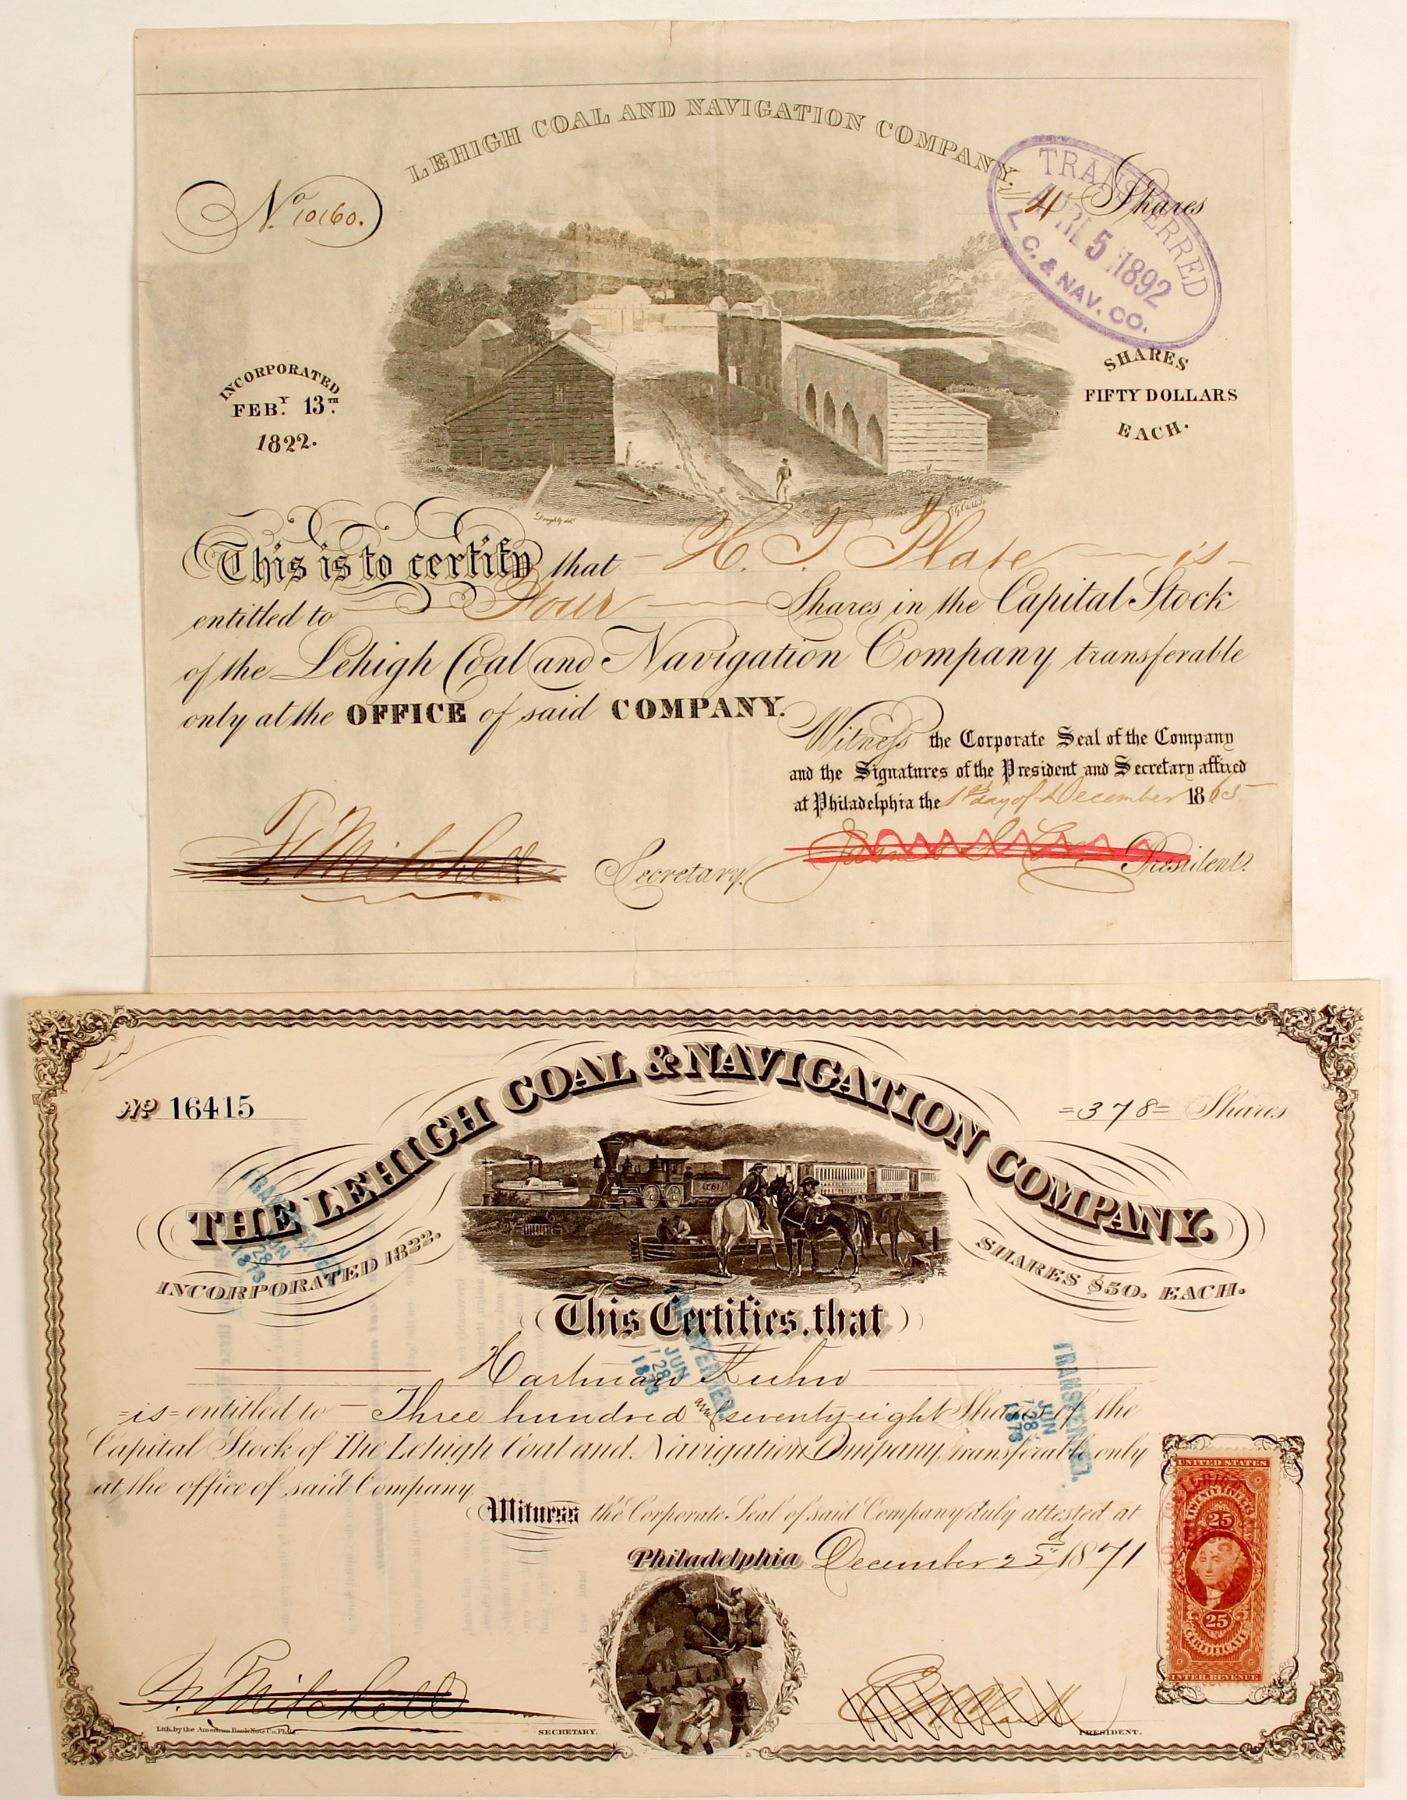 LEHIGH COAL AND NAVIGATION COMPANY.
No 10160.
4 Shares
TRANSFERRED
APRIL 5 1892
L. C. & NAV. CO.
INCORPORATED
FEBY. 13TH.
1822.
SHARES
FIFTY DOLLARS
EACH.
This is to certify that H. T. Plate is
entitled to Four Shares in the Capital Stock
of the Lehigh Coal and Navigation Company transferable
only at the OFFICE of said COMPANY.
Witness the Corporate Seal of the Company
and the Signatures of the President and Secretary affixed
at Philadelphia the 1st day of December 1865
F. Mitchell Secretary.
President.
THE LEHIGH COAL & NAVIGATION COMPANY.
No 16415
=378= Shares
INCORPORATED 1822.
SHARES $50. EACH.
TRANSFERRED
JUN
28
1873
This Certifies, that
Hartman Kuhn
TRANSFERRED
JUN
28
1873
TRANSFERRED
JUN
28
1873
=is= entitled to Three hundred and seventy-eight Shares of the
Capital Stock of The Lehigh Coal and Navigation Company, transferable only
at the office of said Company.
Witness the Corporate Seal of said Company duly attested at
Philadelphia December 22d 1871
UNITED STATES
TWENTY FIVE CTS
25
25
CERTIFICATE
INTER. REVENUE
F. Mitchell
Lith. by the American Bank Note Co. Phila.
SECRETARY.
PRESIDENT.